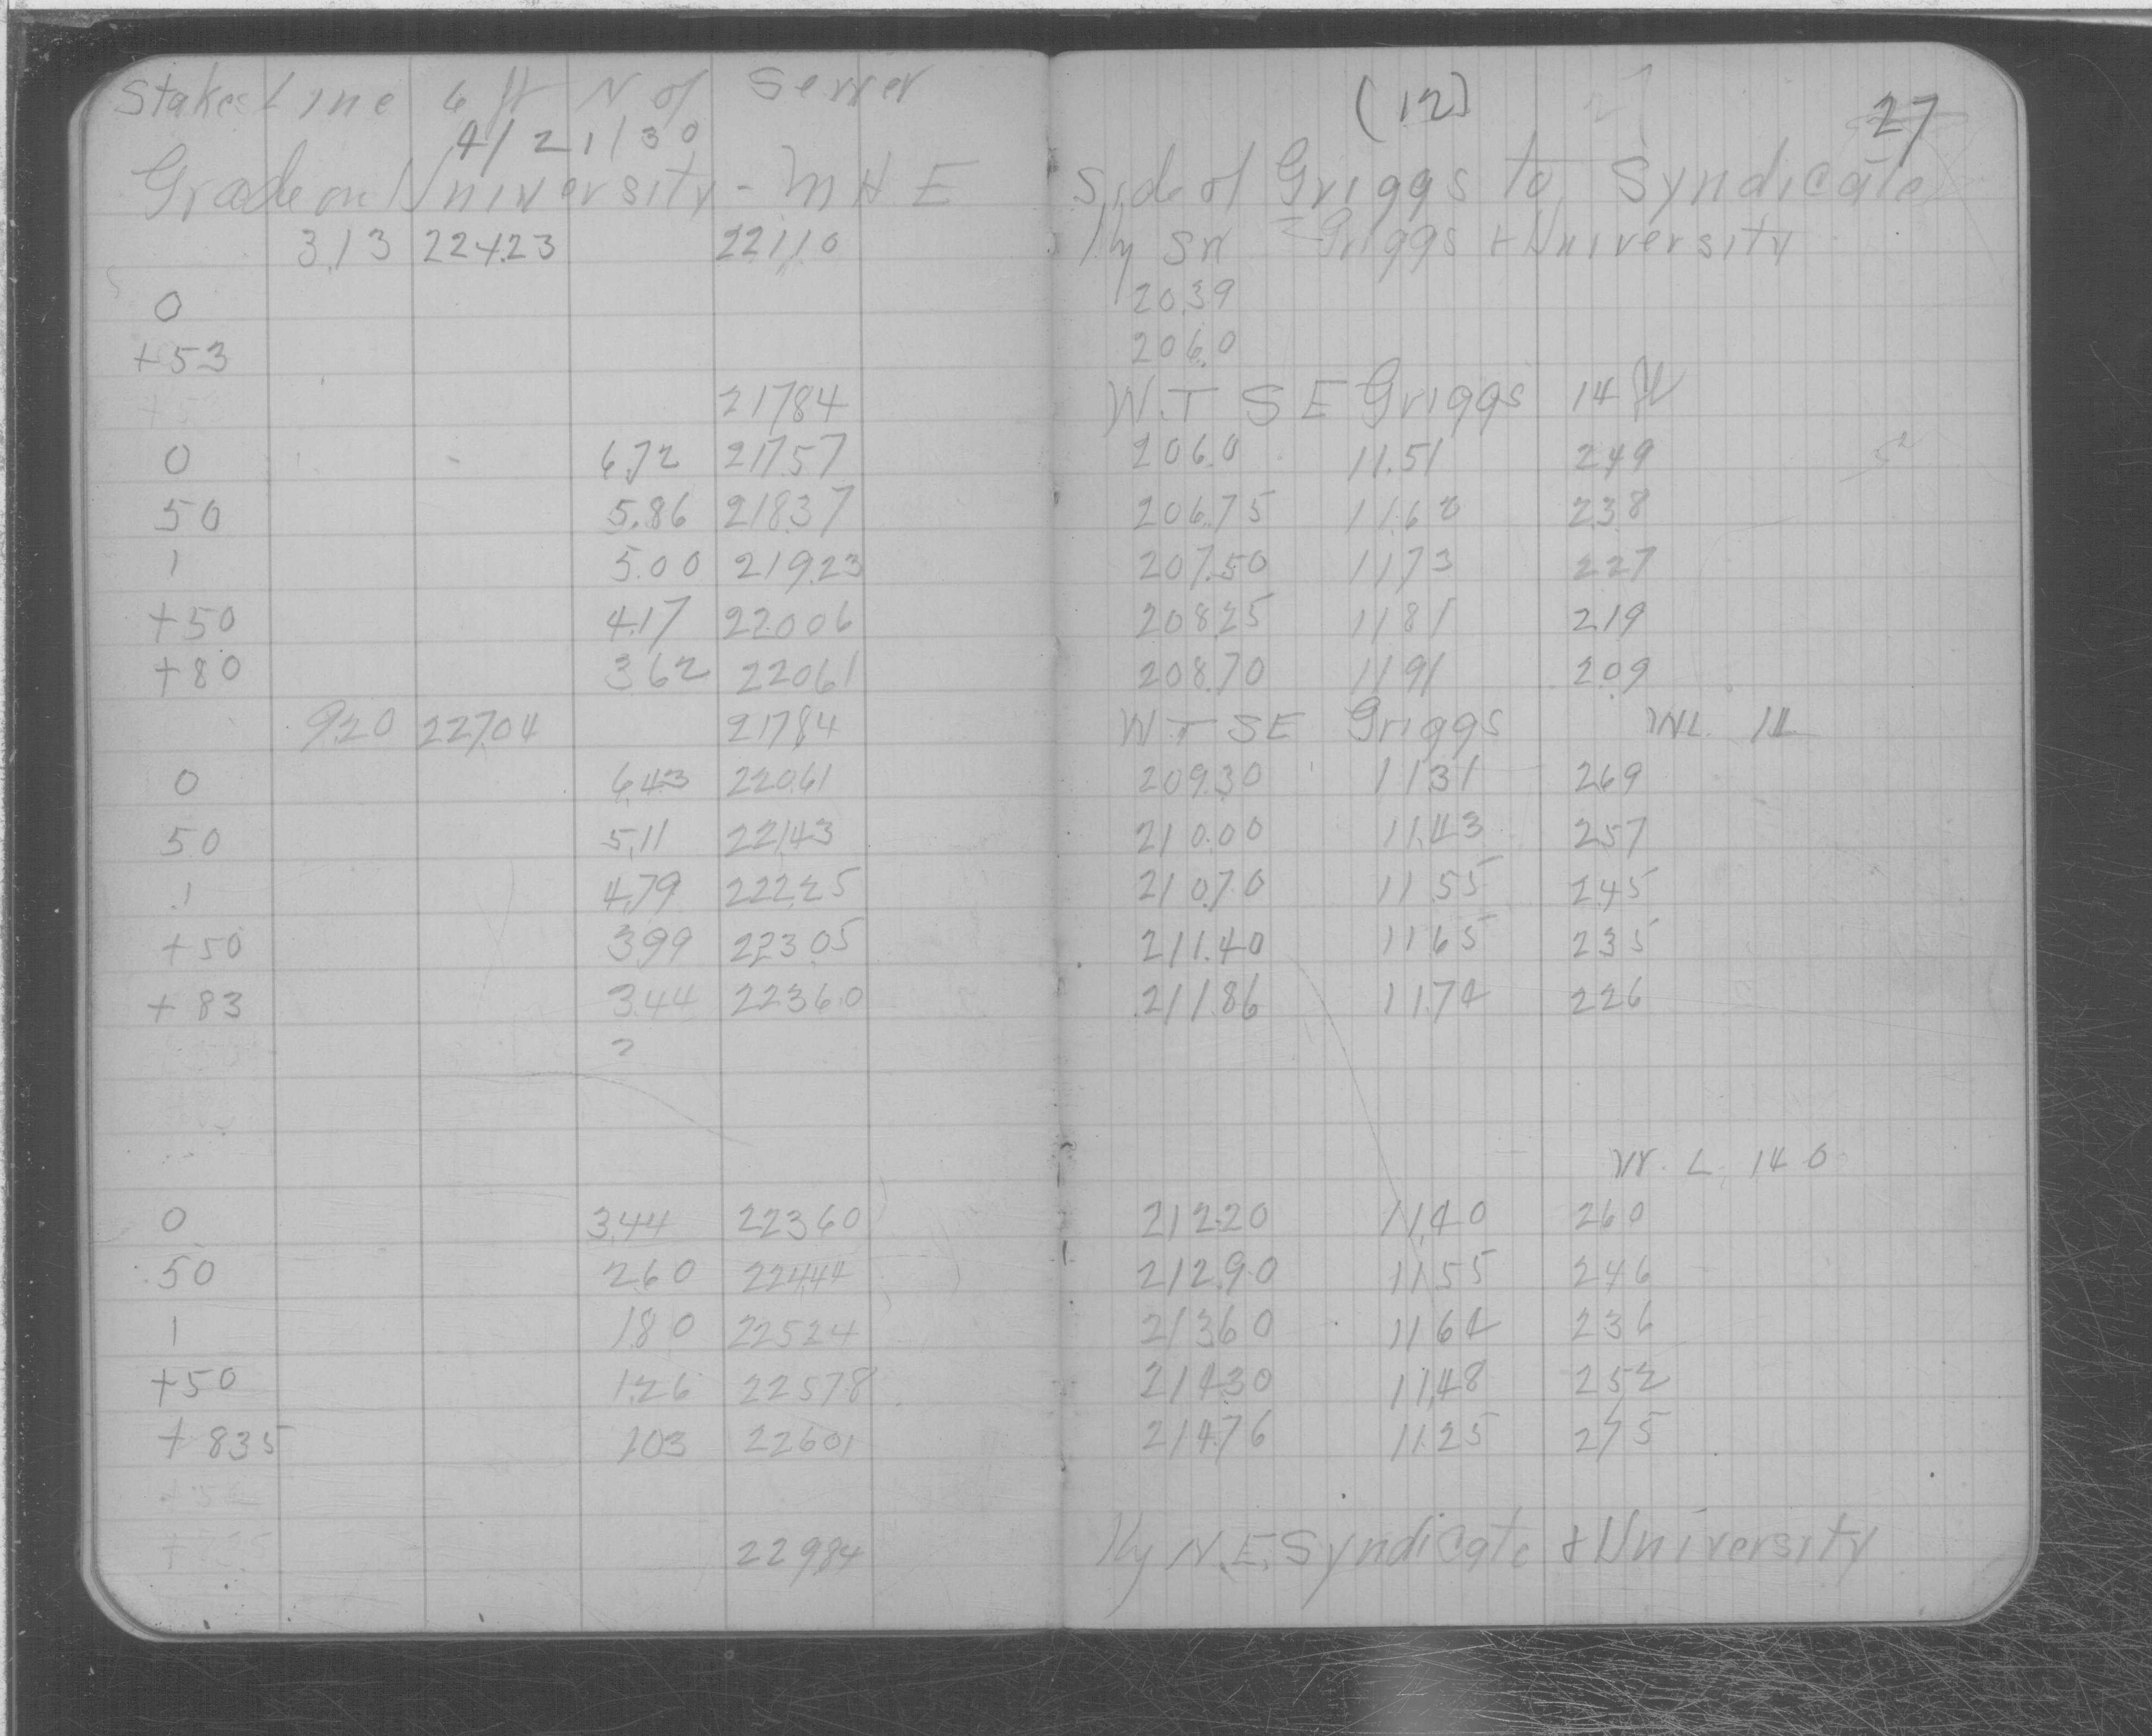 Stakes Line 6 ft N of Sewer (12) 27
4/21/30
Grade on University - M H E Side of Griggs to Syndicate
3.13 224.23 221.10 Hy Griggs + University
0 203.9
+53 206.0
217.84 W.T S E Griggs 14 ft
0 6.72 217.57 206.0 11.51 2.49
50 5.86 218.37 206.75 11.62 2.38
1 5.00 219.23 207.50 11.73 2.27
+50 4.17 220.06 208.25 11.81 2.19
+80 3.62 220.61 208.70 11.91 2.09
9.20 227.04 217.84 W T S E Griggs WL. 14
0 6.43 220.61 209.30 11.31 2.69
50 5.11 221.43 210.00 11.43 2.57
1 4.79 222.25 210.70 11.55 2.45
+50 3.99 223.05 211.40 11.65 2.35
+83 3.44 223.60 211.86 11.74 2.26
W. L. 14.0
0 3.44 223.60 212.20 11.40 2.60
50 2.60 224.44 212.90 11.55 2.46
1 1.80 225.24 213.60 11.64 2.36
+50 1.26 225.78 214.30 11.48 2.52
+835 1.03 226.01 214.76 11.25 2.75
229.84 Hy N.E. Syndicate + University